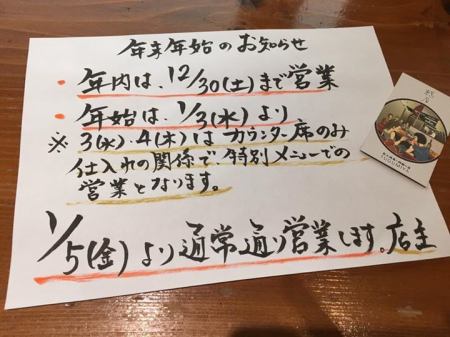 年末年始のお知らせ
・年内は、12/30(土)まで営業
・年始は、1/3(水)より
※3(水)・4(木)はカウンター席のみ
仕入れの関係で特別メニューでの
営業となります。
1/5(金)より通常通り営業します。店主